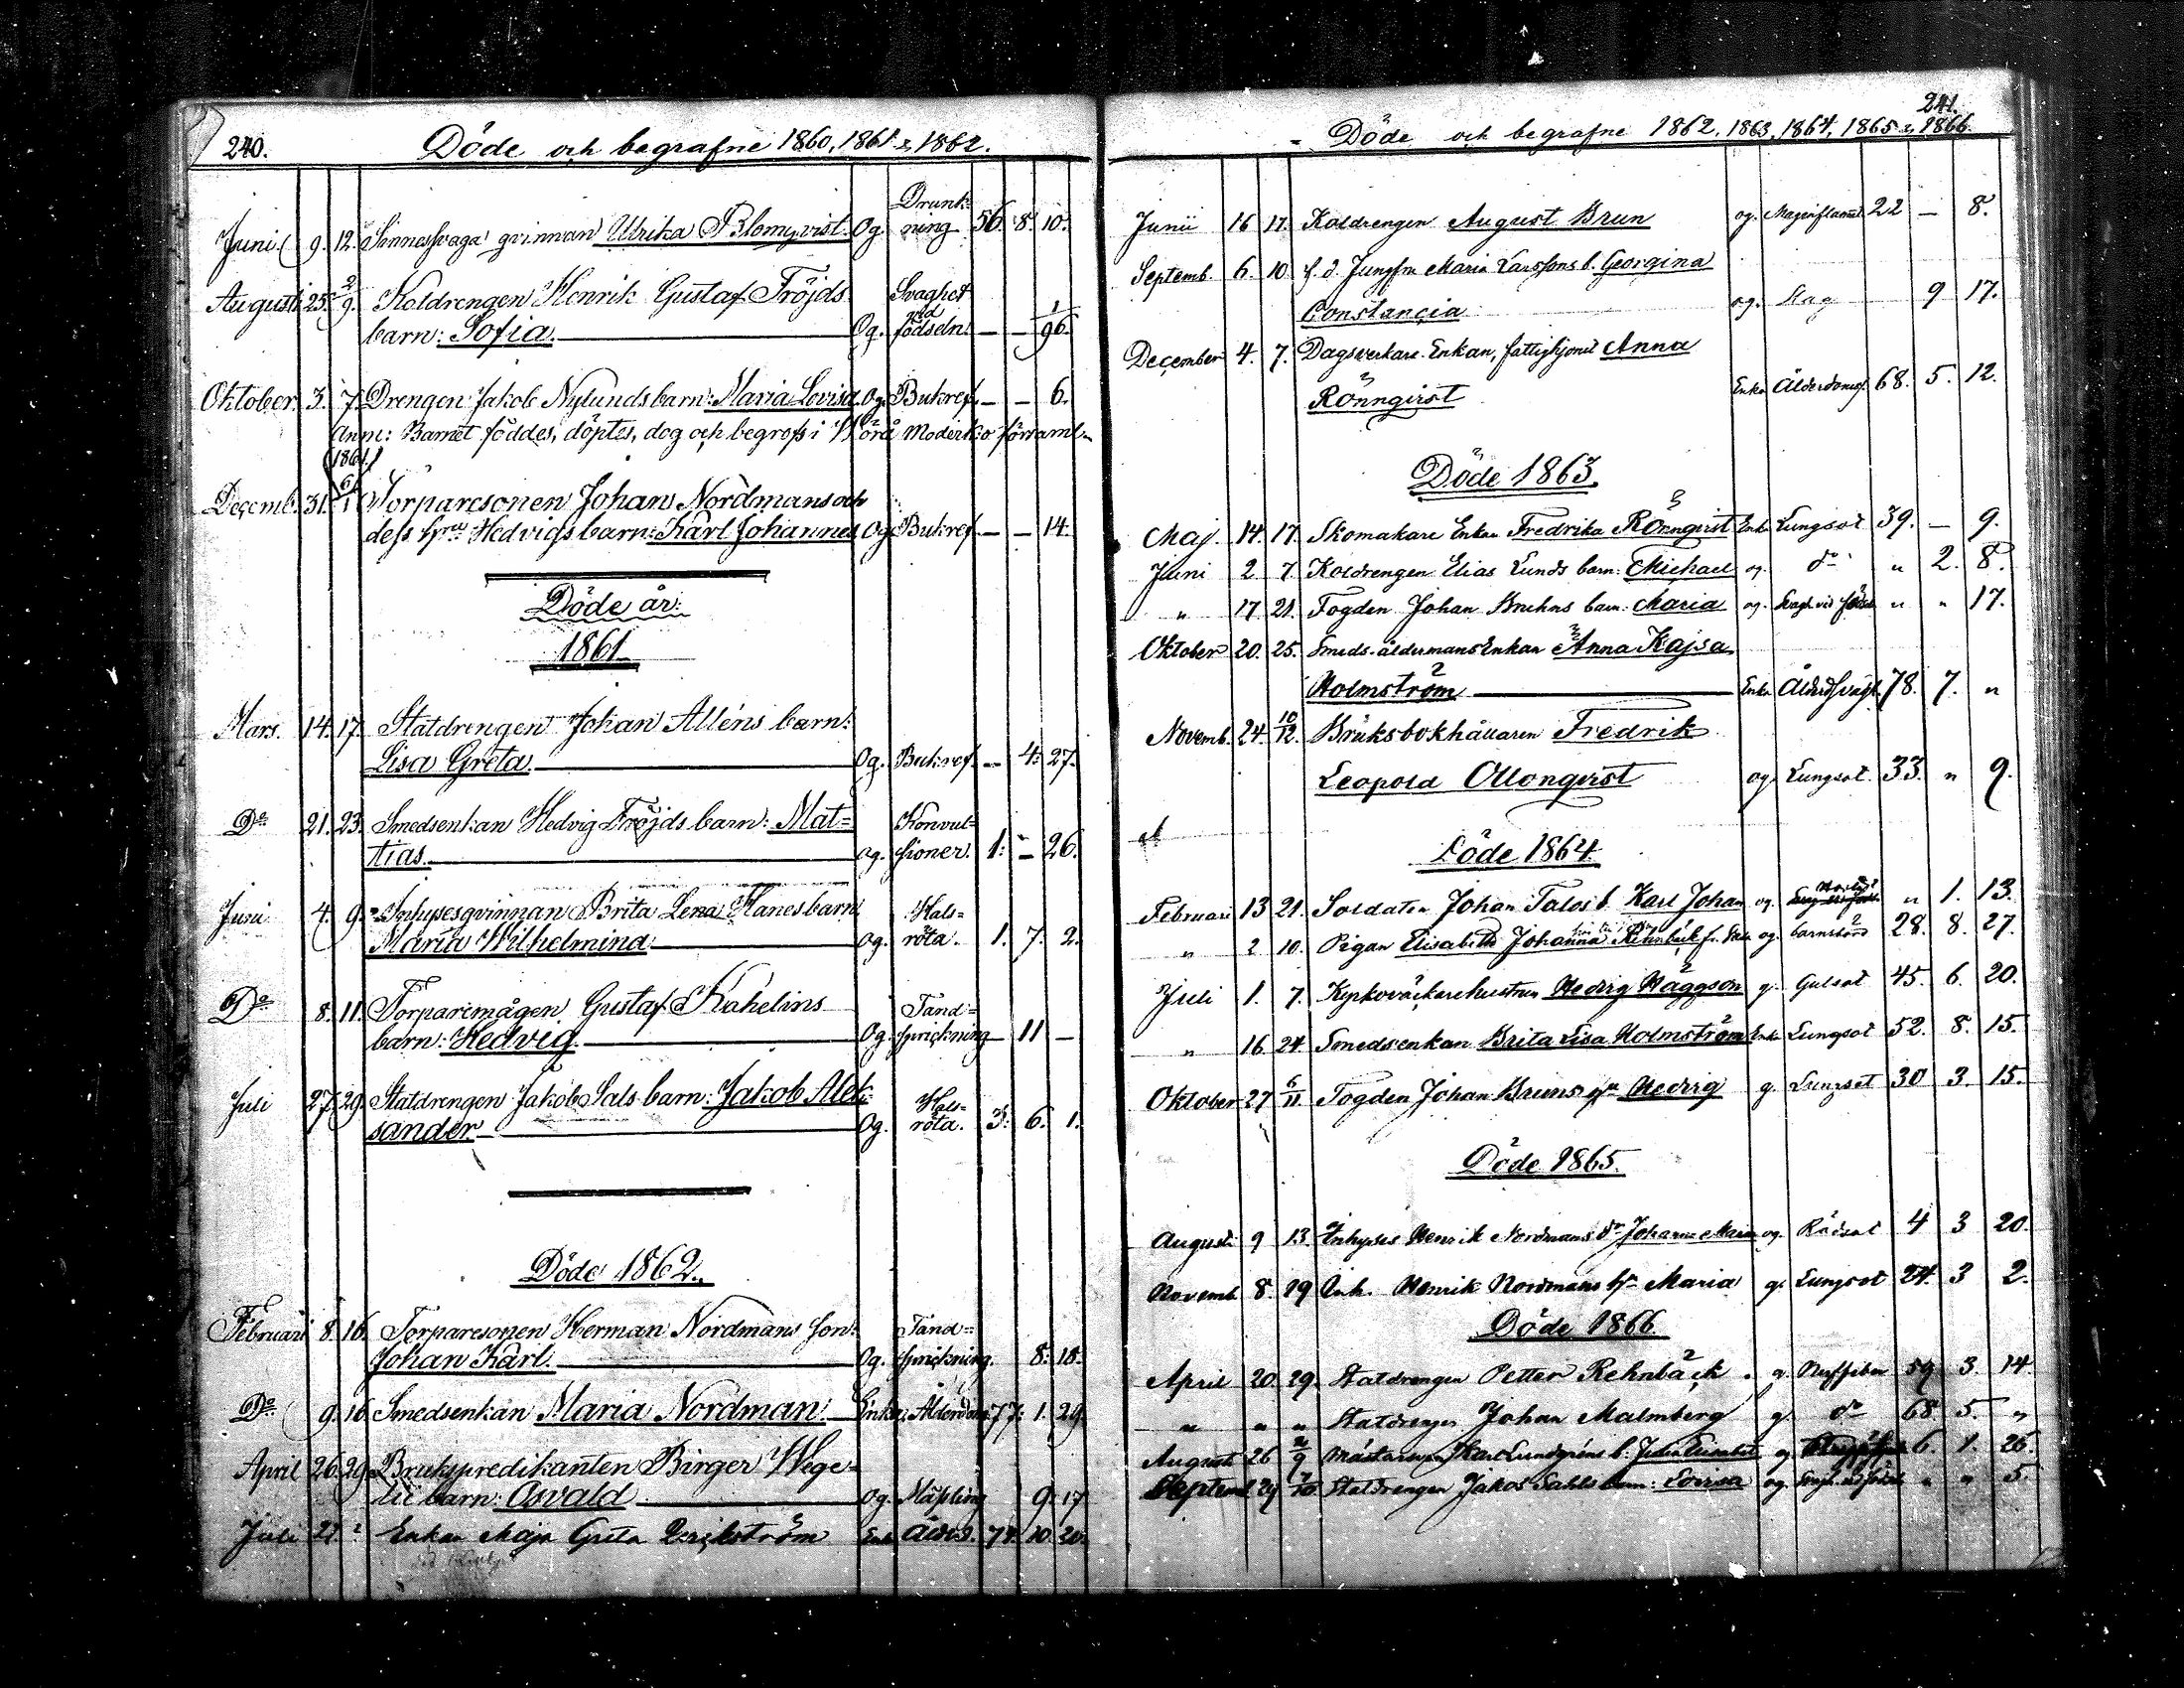 240.
Döde och begrafne 1860, 1861 & 1862.
Juni 9. 12. Sinnessvaga qvinnan Ulrika Blomqvist. Og. Drunk-
ning 56. 8. 10.
Augusti 25. 2/9. Koldrengen Henrik Gustaf Fröjds Svaghet
barn: Sofia. Og. vid födseln. — — 1/96.
Oktober 3. 7. Drengen Jakob Nylunds barn: Maria Lovisa Og. Bukref. — — 6.
Anm: Barnet föddes, döptes, dog och begrofs i Wörå Moderk:o församl.
(1861.)
Decemb. 31. 6/1 Torparesonen Johan Nordmans och
dess h:us Hedvigs barn: Karl Johannes Og. Bukref — — 14.
Döde år:
1861
Mars. 14. 17. Statdrengen Johan Alléns barn:
Lisa Greta. Og. Bukref. — 4. 27.
D:o 21. 23. Smedsenkan Hedvig Fröjds barn: Mat- Konvul-
tias. og. sioner. 1. — 26.
Juni 4. 9. Inhysesqvinnan Brita Lena Hanes barn Hals-
Maria Wilhelmina og. röta. 1. 7. 2.
D:o 8. 11. Torparemågen Gustaf Kahelins Tand-
barn: Hedvig. Og. sprickning — 11 —
Juli 27. 29. Statdrengen Jakob Sals barn: Jakob Alek- Hals-
sander Og. röta. 3. 6. 1.
Döde 1862.
Februari 8. 16. Torparesonen Herman Nordmans son: Tand-
Johan Karl. Og. sprickning. 8. 18.
D:o 9. 16. Smedsenkan Maria Nordman Enka Ålderdom 77. 1. 29.
April 26. 29. Brukspredikanten Birger Wege-
lii barn: Osvald Og. Mäsling 9. 17
Juli 27. Enkan Maja Greta Enk. Ålderd. 74. 10. 20.
241.
Döde och begrafne 1862, 1863, 1864, 1865 & 1866.
Junii 16 17. Koldrengen August Brun og. Maginflamat. 22 — 8.
Septemb. 6. 10. f. d. Jungfru Maria Larssons b. Georgina
Constancia og. Slag 9 17.
December 4. 7. Dagsverkare-Enkan, fattighjonet Anna
Rönnqvist Enka Ålderdomsf. 68. 5. 12.
Döde 1863.
Maj. 14. 17. Skomakare Enkan Fredrika Rönnqvist Enka Lungsot 39. — 9.
Juni 2. 7. Koldrengen Elias Lunds barn: Michael og. d:o " 2. 8.
" 17 21. Fogden Johan Bruhns barn: Maria og. Svagh. vid födsel " " 17.
Oktober 20. 25. Smeds-åldermans Enkan Anna Kajsa
Holmström Enka Ålderdsvagh. 78. 7. "
Novemb. 24. 10/12. Bruksbokhållaren Fredrik
Leopold Ollonqvist og. Lungsot. 33. " 9.
Döde 1864.
Februari 13 21. Soldaten Johan Talos b. Karl Johan og. " 1. 13.
" 2 10. Pigan Elisabeth Johanna Rehnbäck og. barnsbörd 28. 8. 27.
Juli 1. 7. Kyrkoväktarehustrun Hedvig Häggson g. Gulsot 45. 6. 20.
" 16 24 Smedsenkan Brita Lisa Holmström Enka Lungsot 52. 8. 15.
Oktober 27 6/11 Fogden Johan Bruns h:u Hedvig g. Lungsot 30 3. 15.
Döde 1865.
Augusti 9 13. Inhyses Henrik Nordmans d:r Johanna Maria og. Rödsot 4 3 20.
Novemb 8. 19 Inh. Henrik Nordmans h:u Maria g. Lungsot 24. 3 2.
Döde 1866.
April 20. 29. Statdrengen Petter Rehnbäck g. Nerffeber 59 3. 14.
" " " Statdrengen Johan Malmberg g. d:o 68. 5. "
Augusti 26 2/9 Karl Lundgréns b. og 6. 1. 26.
Septemb 29 7/10 Statdrengen Jakob Sahls barn: Lovisa og. Svagh. vid födsel " " 5.